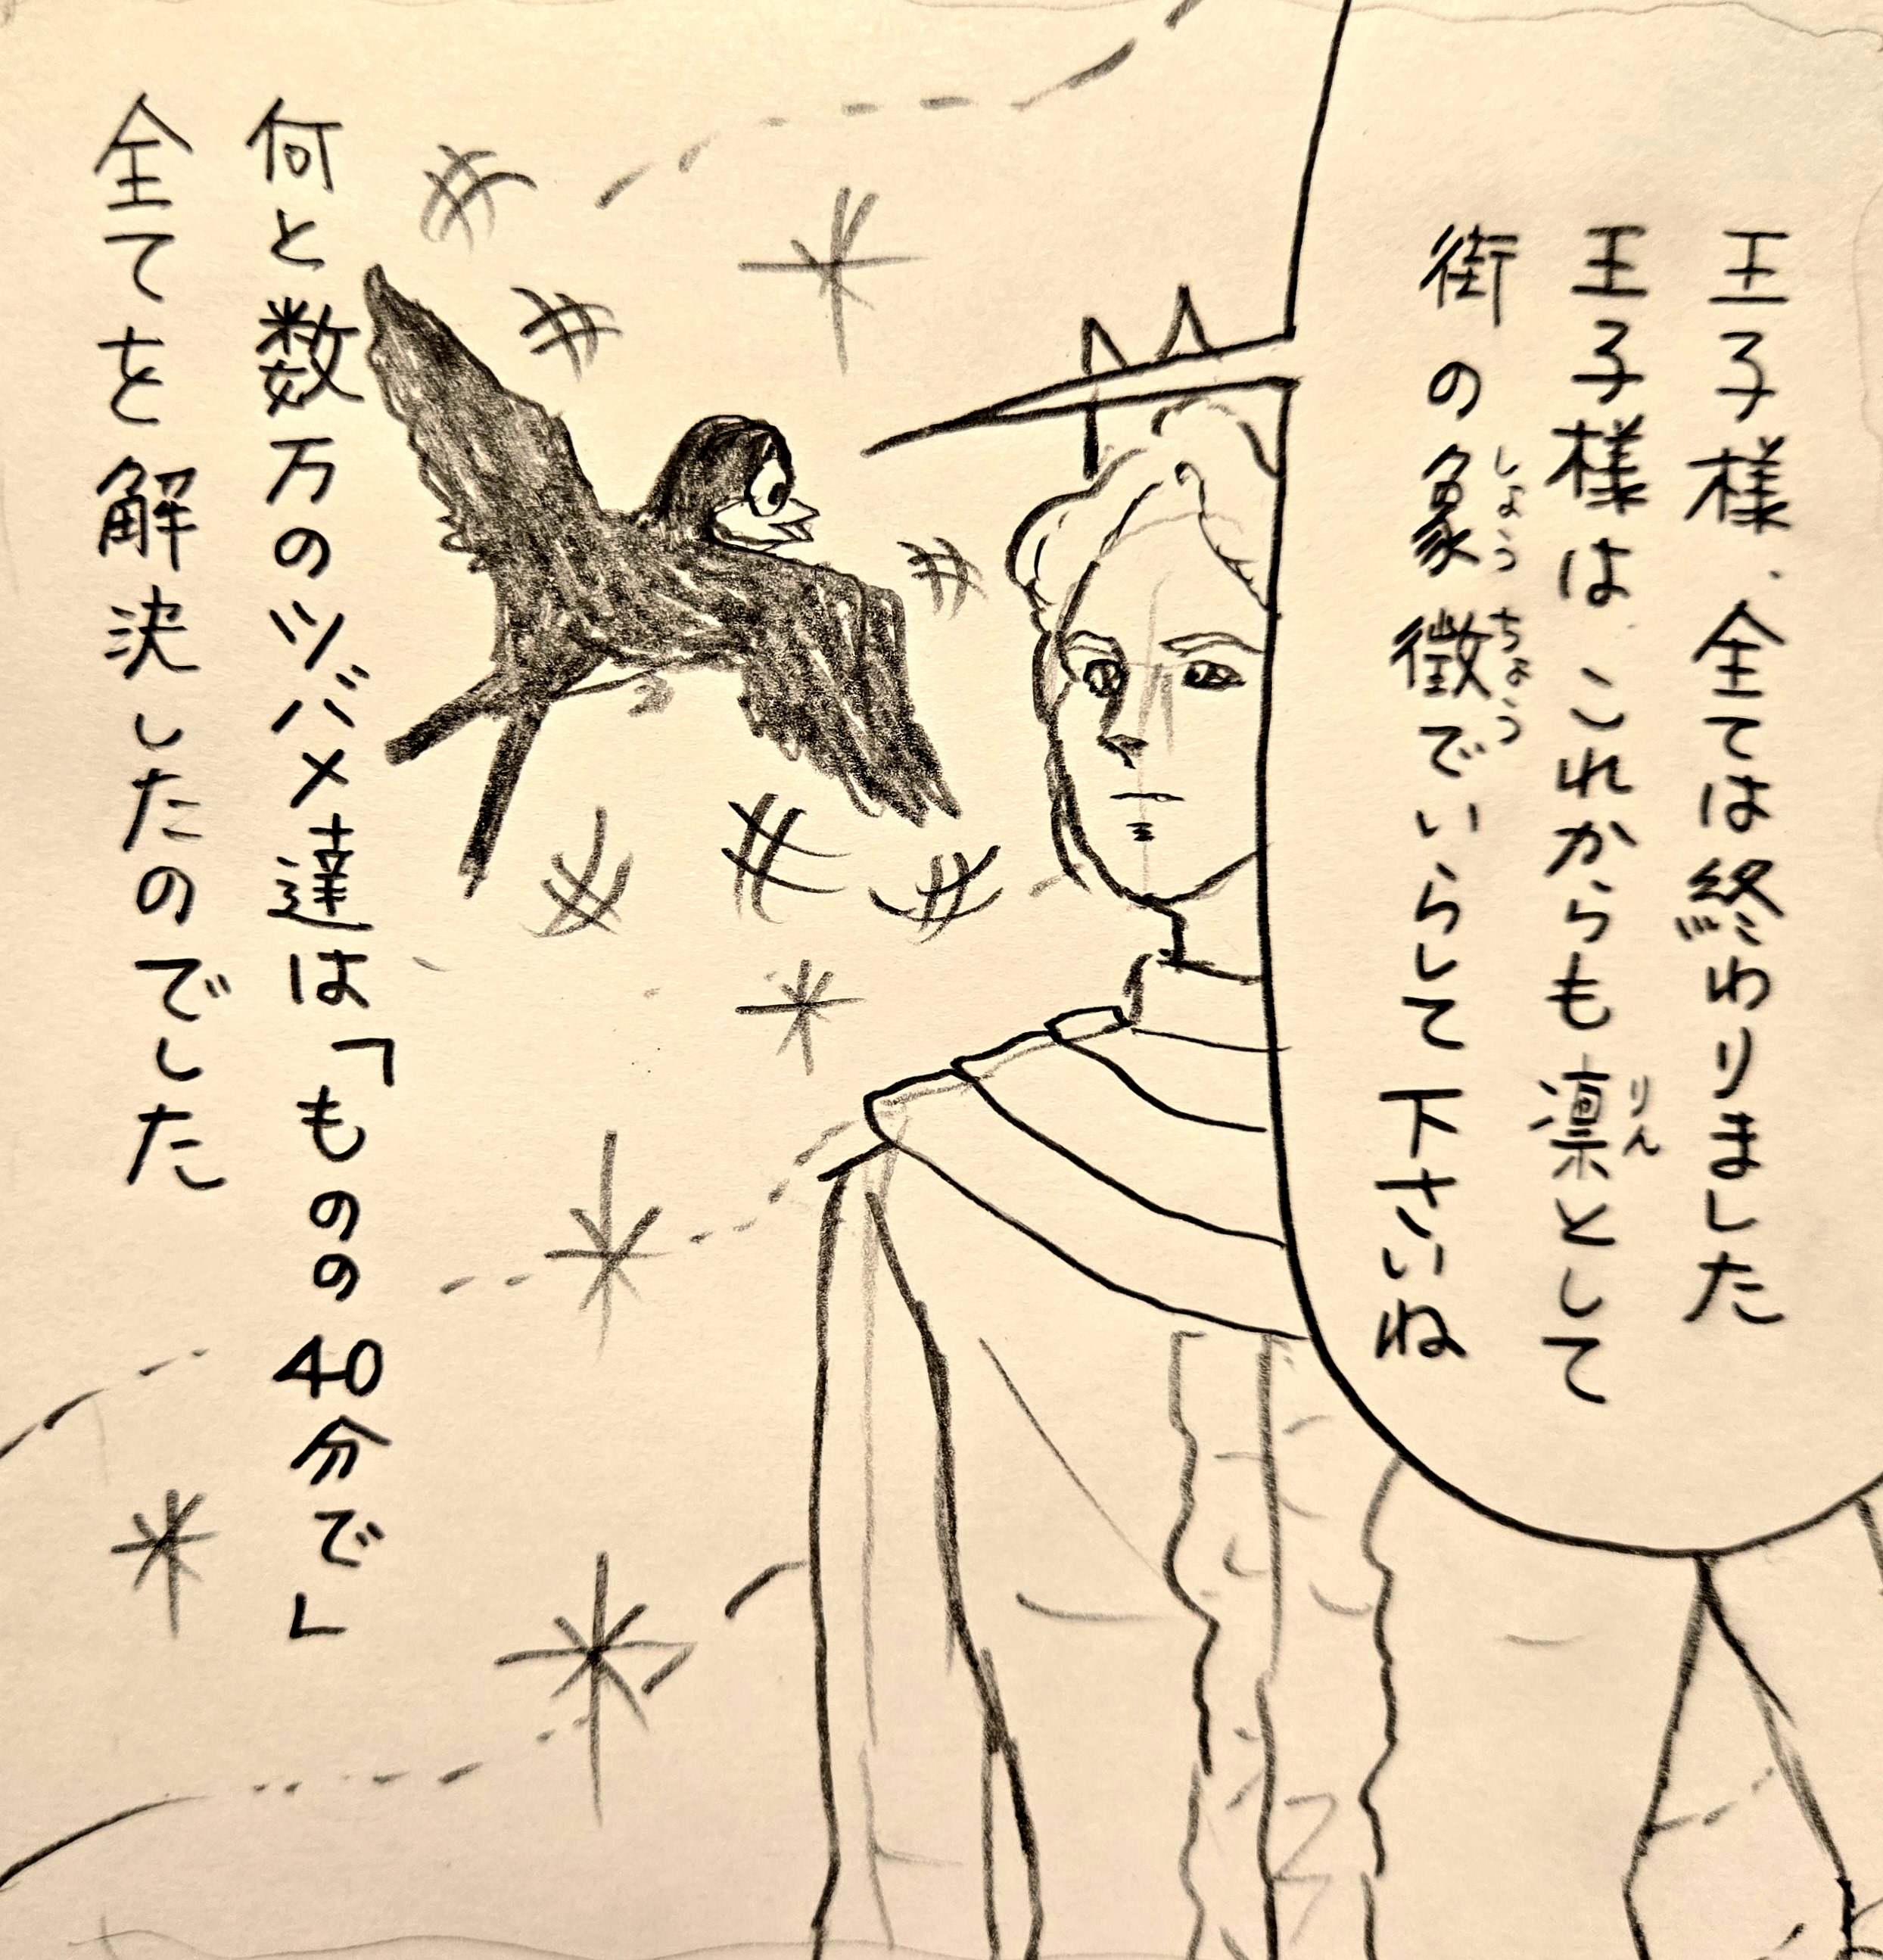 王子様、全ては終わりました
王子様は これからも凛として
りん
街の象徴でいらして下さいね
しょうちょう
何と数万のツバメ達は「ものの40分で」
全てを解決したのでした